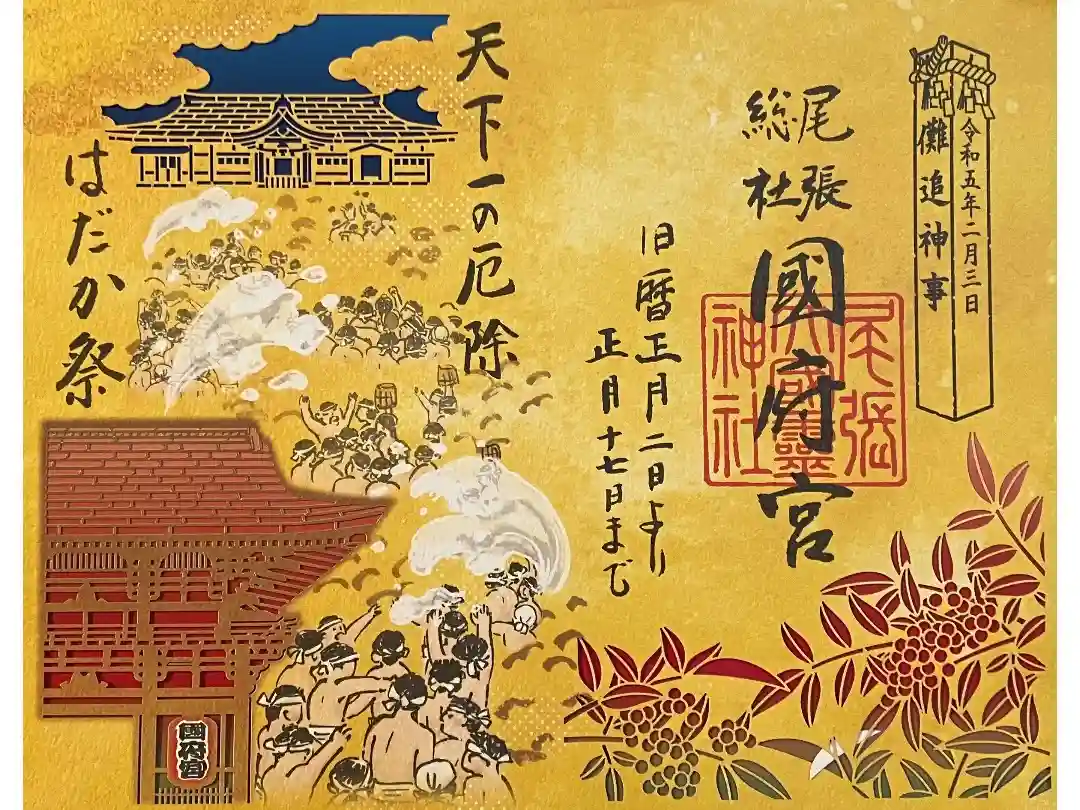 儺追神事
令和五年二月三日
尾張
総社
國府宮
尾張
大國霊
神社
旧暦正月二日より
正月十七日まで
天下一の厄除
はだか祭
國府宮